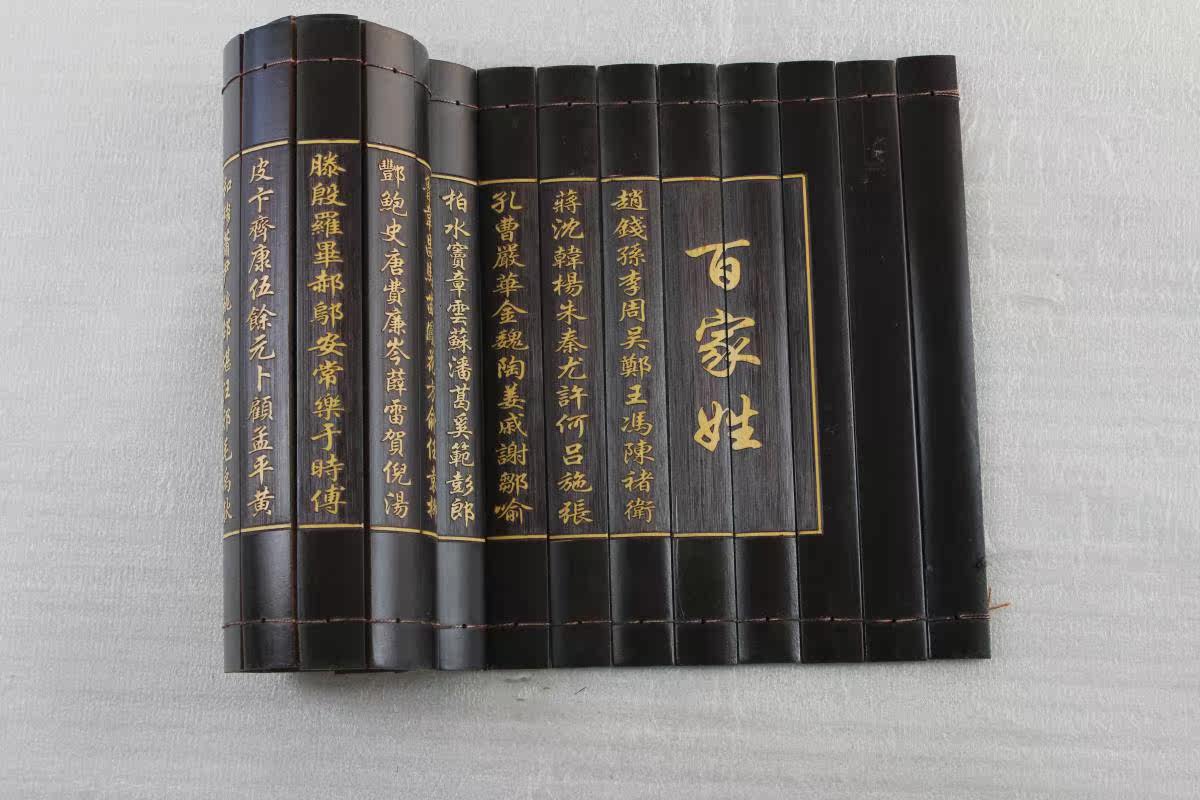 百家姓
趙錢孫李周吴鄭王馮陳褚衛
蔣沈韓楊朱秦尤許何吕施張
孔曹嚴華金魏陶姜戚謝鄒喻
柏水竇章雲蘇潘葛奚範彭郎
酆鮑史唐費廉岑薛雷賀倪湯
滕殷羅畢郝鄔安常樂于時傅
皮卞齊康伍餘元卜顧孟平黄